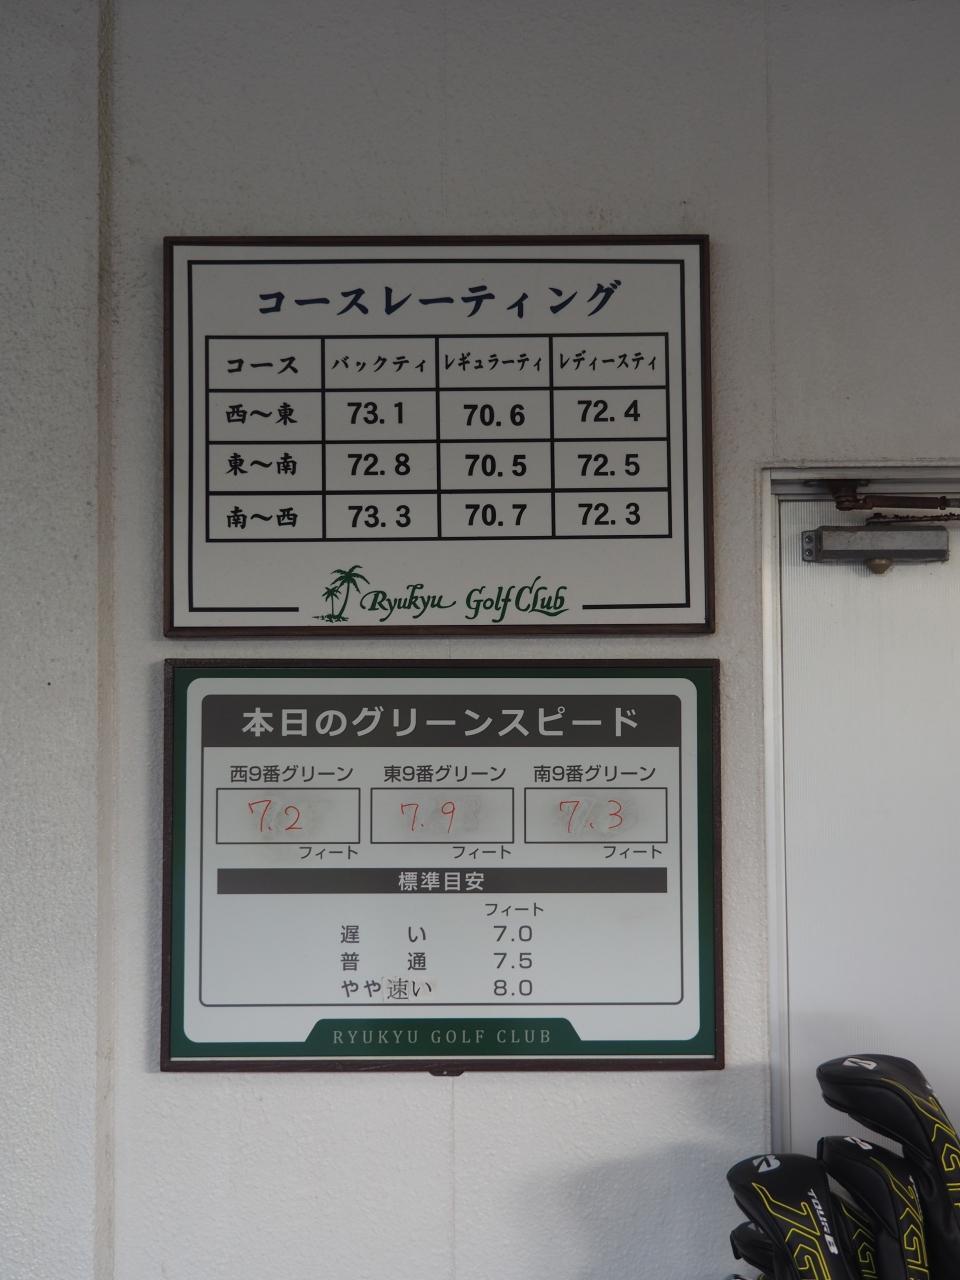 コースレーティング
コース バックティ レギュラーティ レディースティ
西〜東 73.1 70.6 72.4
東〜南 72.8 70.5 72.5
南〜西 73.3 70.7 72.3
Ryukyu Golf Club
本日のグリーンスピード
西9番グリーン 東9番グリーン 南9番グリーン
7.2 7.9 7.3
フィート フィート フィート
標準目安
フィート
遅い 7.0
普通 7.5
やや速い 8.0
RYUKYU GOLF CLUB
TOUR B
JGR